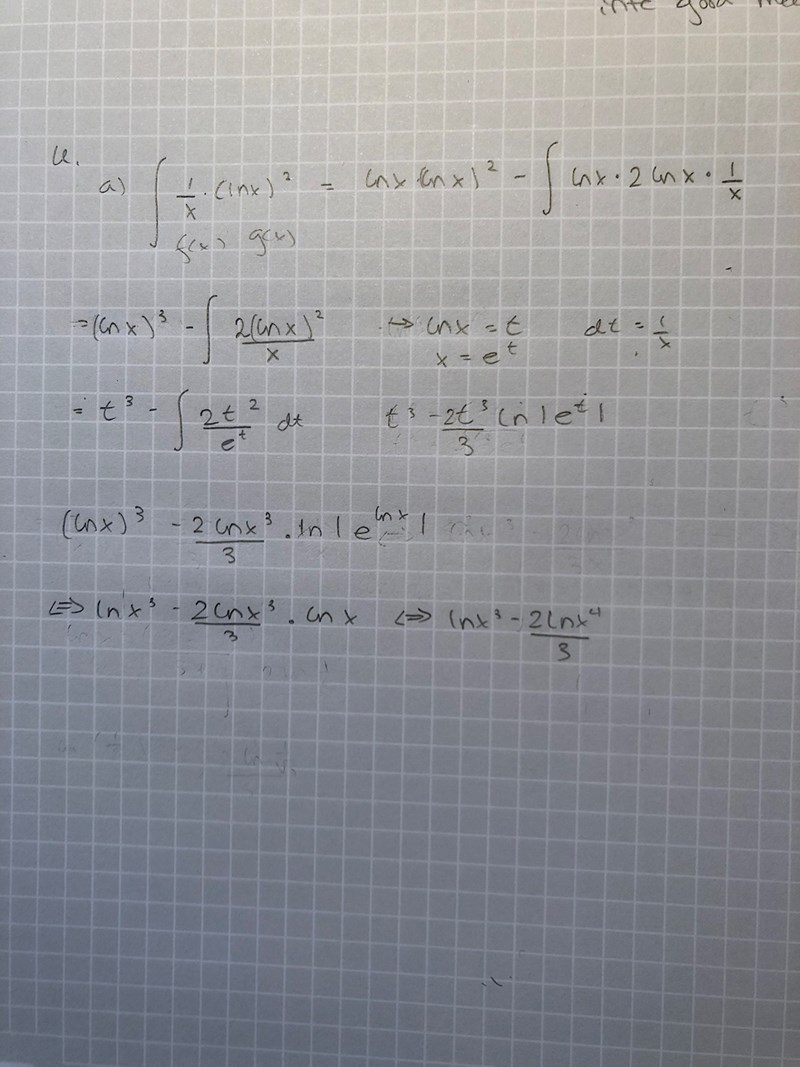 inte good
U.
a) ∫ 1/x · (lnx)² = lnx (lnx)² - ∫ lnx · 2 lnx · 1/x
f(x) g(x)
= (lnx)³ - ∫ 2(lnx)²/x ↦ lnx = t dt = 1/x
x = e^t
= t³ - ∫ 2t²/e^t dt t³ - 2t³/3 ln|e^t|
(lnx)³ - 2lnx³/3 · ln|e^lnx|
⇔ lnx³ - 2lnx³/3 · lnx ⇔ lnx³ - 2lnx⁴/3